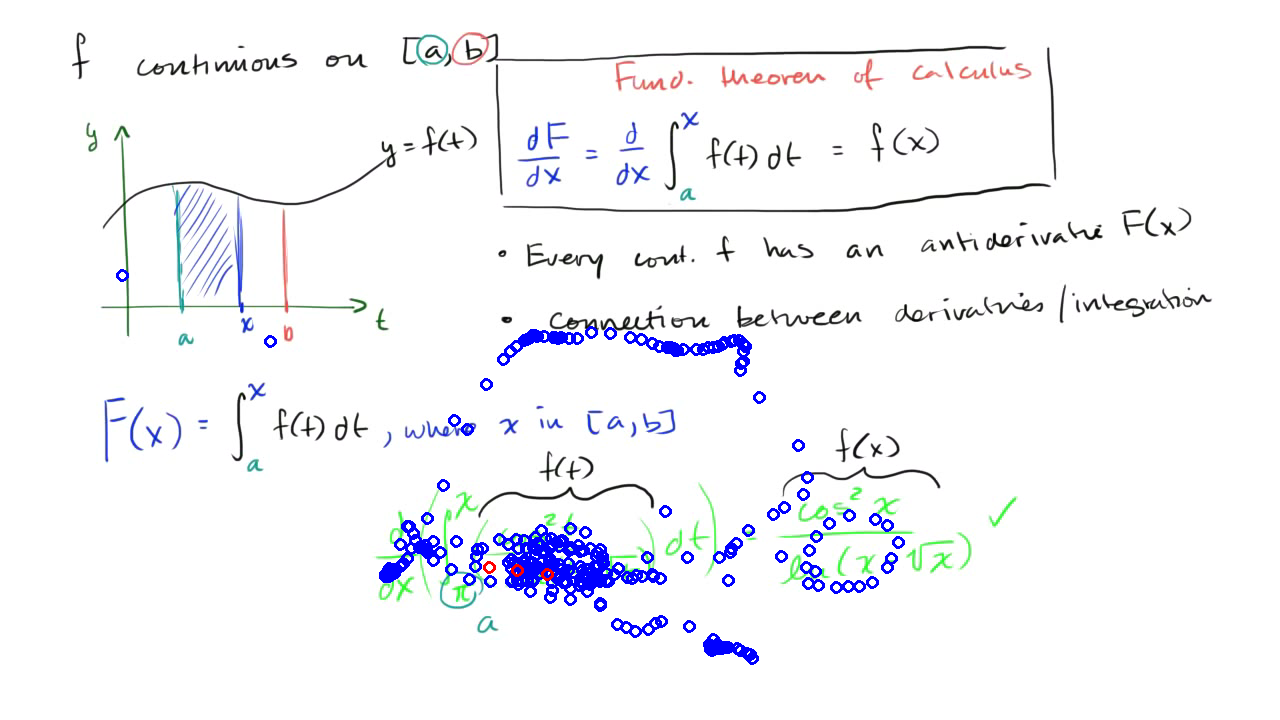 f continuous on [a, b]
Fund. theorem of calculus
dF/dx = d/dx ∫_a^x f(t) dt = f(x)
y
y = f(t)
a x b t
• Every cont. f has an antiderivative F(x)
• connection between derivatives/integration
F(x) = ∫_a^x f(t) dt, where x in [a, b]
f(t) f(x)
d/dx ( ∫_π^x ( dt ) = cos² x / ln(x √x) ✓
a